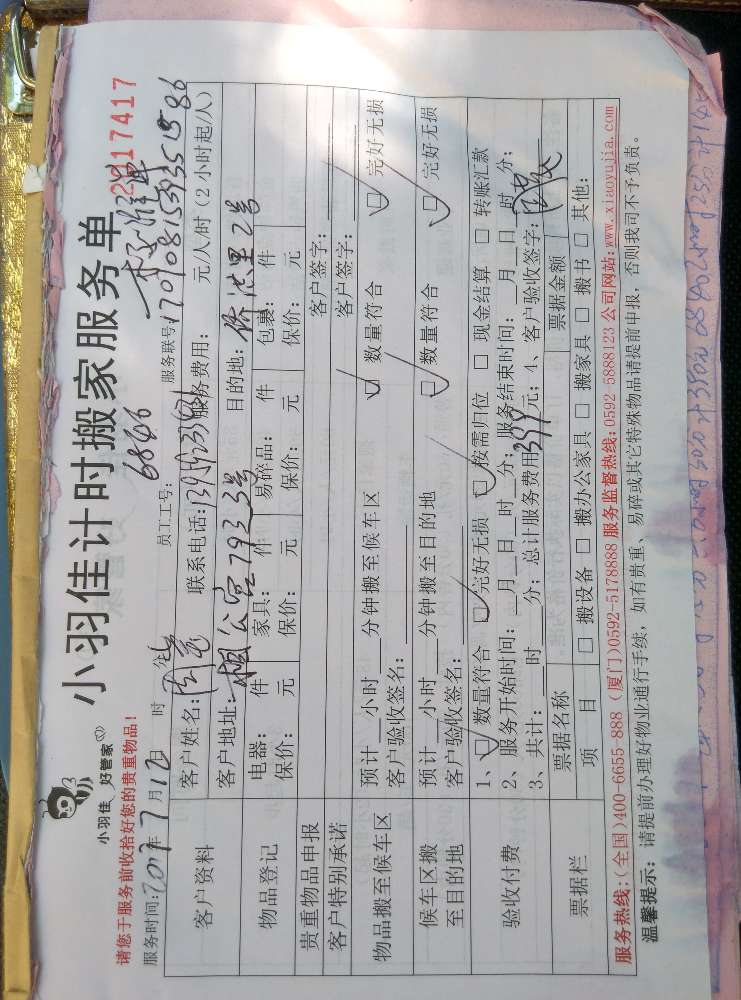 小羽佳 好管家
小羽佳计时搬家服务单
2017417
请您于服务前收拾好您的贵重物品!
服务时间:2017年7月12日 时 分 员工工号:6846 服务联号:
客户资料
客户姓名: 联系电话: 服务费用: 元/人/时(2小时起/人)
客户地址: 公寓793 3号 目的地:侨洪里2号
物品登记
电器: 件 家具: 件 易碎品: 件 包裹: 件
保价: 元 保价: 元 保价: 元 保价: 元
贵重物品申报 客户签字:
客户特别承诺 客户签字:
物品搬至候车区
预计 小时 分钟搬至候车区 数量符合 完好无损
客户验收签名:
候车区搬至目的地
预计 小时 分钟搬至目的地 数量符合 完好无损
客户验收签名:
验收付费
1、 数量符合 完好无损 按需归位 现金结算 转账汇款
2、服务开始时间: 月 日 时 分;服务结束时间: 月 日 时 分;
3、共计: 时 分;总计服务费用399元;4、客户验收签字:
票据栏
票据名称 票据金额
项 目 搬设备 搬办公家具 搬家具 搬书 其他:
服务热线:(全国)400-6655-888 (厦门)0592-5178888 服务监督热线:0592 5888123 公司网站:www.xiaoyujia.com
温馨提示:请提前办理好物业通行手续,如有贵重、易碎或其它特殊物品请提前申报,否则我司不予负责。